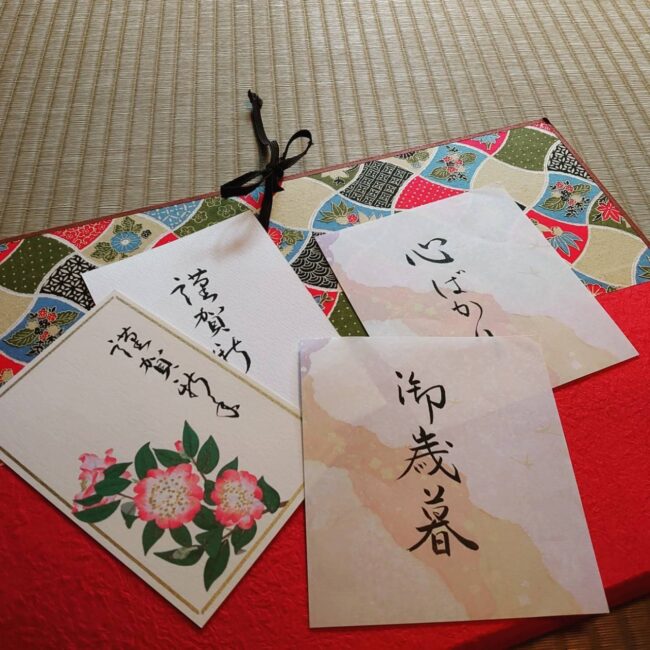 謹賀新
謹賀新年
心ばかり
御歳暮